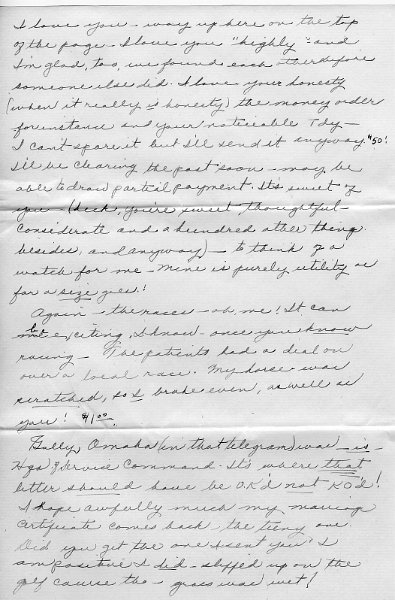 I love you - way up here on the top
of the page - I love you "highly" - and
I'm glad, too, we found each other before
someone else did. I love your honesty
(when it really is honesty) the money order
for instance and your noticeable Tdy -
I can't spare it but I'll send it anyway. "50".
I'll be clearing the post soon - may be
able to draw partial payment. It's sweet of
you - (heck, you're sweet, thoughtful -
considerate and a hundred other things
besides, and anyway) - to think of a
watch for me - Mine is purely utility as
for a size goes!
Again - the races - oh me! It can
be exciting, I know - once you know
racing - The patients had a deal on
over a local race. My horse was
scratched, so I broke even, as well as
you! $1.00.
Golly, Omaha (in that telegram) was - is -
Hqs 7 Service Command. It's where that
letter should have be O.K'd not KO'd!
I hope awfully much my marriage
certificate comes back, the teeny one
Did you get the one I sent you? I
am positive I did - slipped up on the
golf course tho - grass was wet!